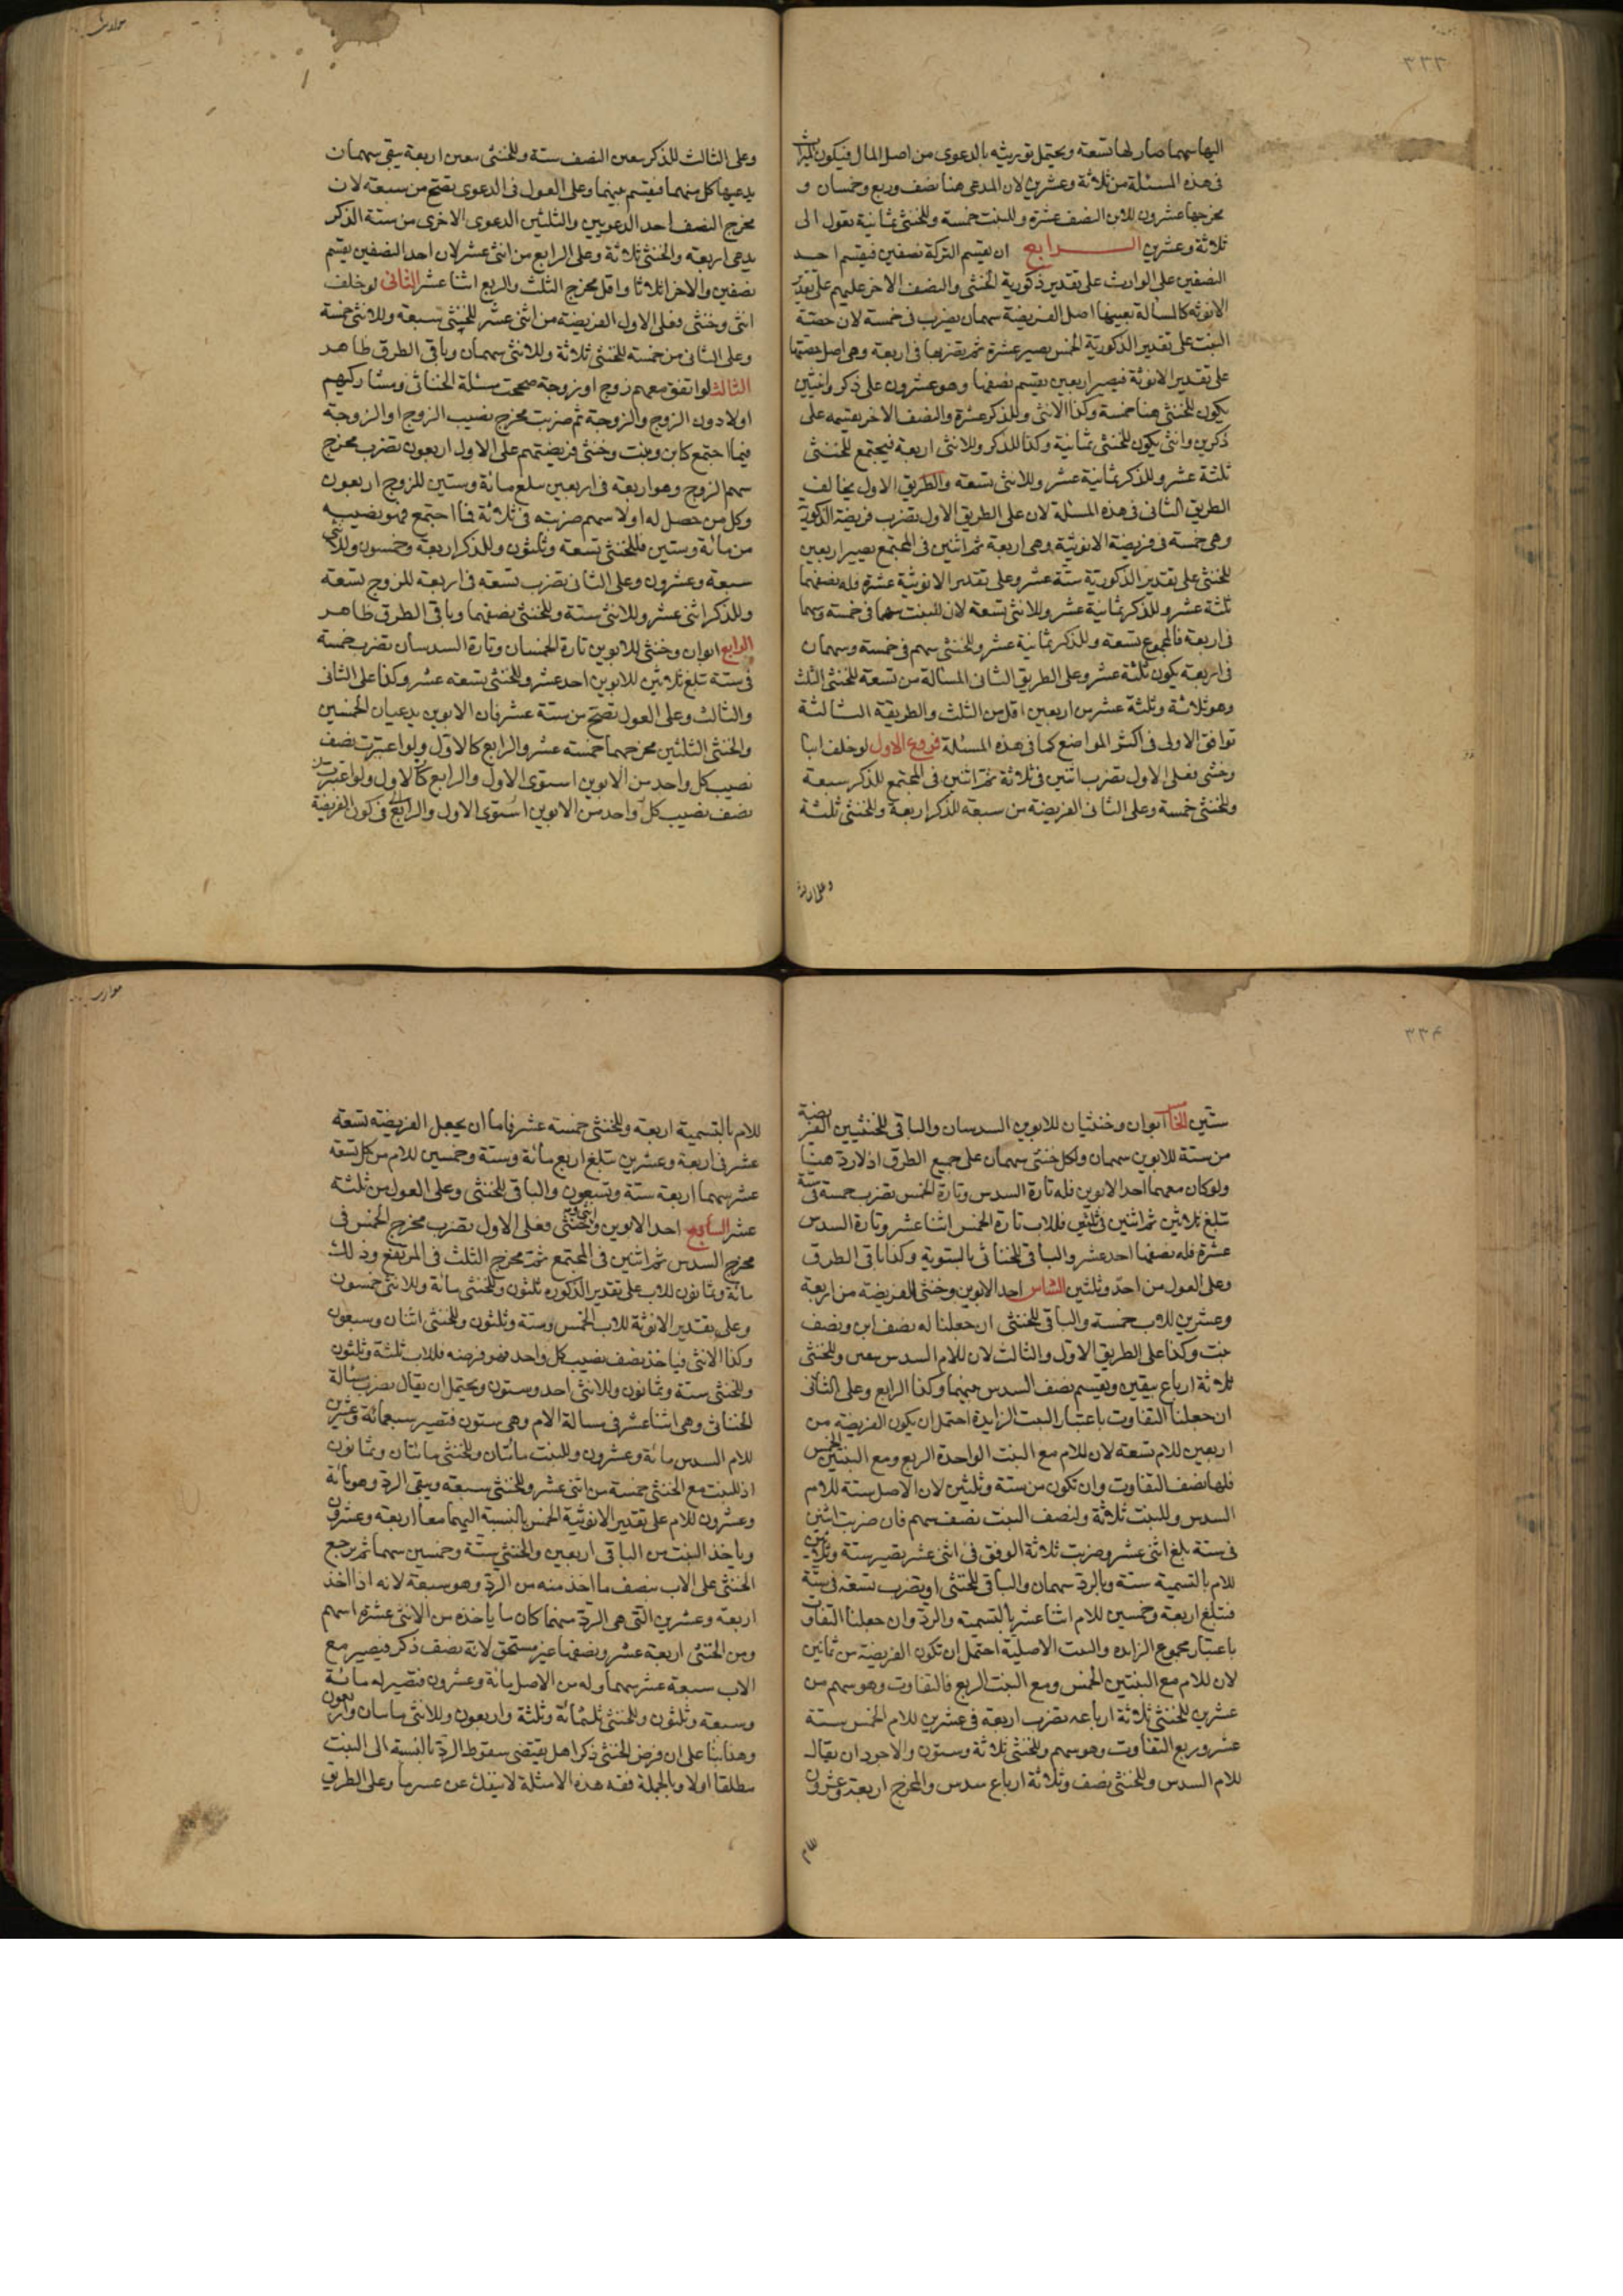 ٣٣٣
اليها سهما صار لها تسعة ويحتمل توريثه بالدعوى من اصل المال فيكون
فى هذه المسئلة من ثلاثة وعشرين لان المدعى هنا نصف وربع وخمسان و
مخرجها عشرون للابن النصف عشرة وللبنت خمسة وللخنثى ثمانية تعول الى
ثلاثة وعشرين الرابع ان يقسم التركة نصفين فيقسم احد
النصفين على الوارث على تقدير ذكورية الخنثى والنصف الاخر عليهم على تقدير
الانوثة كالمسالة بعينها اصل الفريضة سهمان يضرب فى خمسة لان حصتة
البنت على تقدير الذكورية الخمس يصير عشرة ثم تضربها فى اربعة وهى اصل حصتها
على تقدير الانوثة فيصير اربعين يقسم نصفها وهو عشرون على ذكر وانثيين
يكون للخنثى هنا خمسة وكذا الانثى وللذكر عشرة والنصف الاخر يقسمه على
ذكرين وانثى يكون للخنثى ثمانية وكذا للذكر وللانثى اربعة فيجتمع للخنثى
ثلثة عشر وللذكر ثمانية عشر وللانثى تسعة والطريق الاول يخالف
الطريق الثانى فى هذه المسئلة لان على الطريق الاول تضرب فريضة الذكورية
وهى خمسة فى فريضة الانوثية وهى اربعة ثم اثنين فى المجتمع يصير اربعين
للخنثى على تقدير الذكورية ستة عشر وعلى تقدير الانوثية عشرة فله نصفهما
ثلثة عشر وللذكر ثمانية عشر وللانثى تسعة لان للبنت سهما فى خمسة وسهما
فى اربعة فالمجموع تسعة وللذكر ثمانية عشر وللخنثى سهم فى خمسة وسهمان
فى اربعة يكون ثلثة عشر وعلى الطريق الثانى المسالة من تسعة للخنثى الثلث
وهو ثلاثة وثلثة عشر من اربعين اقل من الثلث والطريقة الثالثة
توافق الاولى فى اكثر المواضع كما فى هذه المسئلة فروع الاول لو خلف ابنا
وخنثى فعلى الاول تضرب اثنين فى ثلاثة ثم اثنين فى المجتمع للذكر سبعة
وللخنثى خمسة وعلى الثانى الفريضة من سبعة للذكر اربعة وللخنثى ثلثة
وعلى الثالث للذكر بيقين النصف ستة وللخنثى بيقين اربعة يبقى سهمان
يدعيها كل منهما فيقسم بينهما وعلى العول فى الدعوى تصح من سبعة لان
مخرج النصف احد الدعويين والثلثين الدعوى الاخرى من ستة الذكر
يدعى اربعة والخنثى ثلاثة وعلى الرابع من اثنى عشر لان احد النصفين يقسم
نصفين والاخر اثلاثا واقل مخرج الثلث والربع اثنا عشر الثانى لو خلف
انثى وخنثى فعلى الاول الفريضة من اثنى عشر للخنثى سبعة وللانثى خمسة
وعلى الثانى من خمسة للخنثى ثلاثة وللانثى سهمان وباقى الطرق ظاهر
الثالث لو اتفق معهم زوج او زوجة صححت مسئلة الخناثى ومشاركيهم
اولا دون الزوج والزوجة ثم ضربت مخرج نصيب الزوج او الزوجة
فيما اجتمع كابن وبنت وخنثى فريضتهم على الاول اربعون تضرب مخرج
سهم الزوج وهو اربعة فى اربعين تبلغ مائة وستين للزوج اربعون
وكل من حصل له اولا سهم ضربته فى ثلاثة فما اجتمع فهو نصيبه
من مائة وستين فللخنثى تسعة وثلثون وللذكر اربعة وخمسون وللانثى
سبعة وعشرون وعلى الثانى تضرب تسعة فى اربعة للزوج تسعة
وللذكر اثنى عشر وللانثى ستة وللخنثى نصفهما وباقى الطرق ظاهر
الرابع ابوان وخنثى للابوين تارة الخمسان وتارة السدسان تضرب خمسة
فى ستة تبلغ ثلاثين للابوين احد عشر وللخنثى تسعة عشر وكذا على الثانى
والثالث وعلى العول تصح من ستة عشر فان الابوين يدعيان الخمسين
والخنثى الثلثين مخرجهما خمسة عشر والرابع كالاول ولو اعتبرت نصف
نصيب كل واحد من الابوين استوى الاول والرابع كالاول ولو اعتبرت
نصف نصيب كل واحد من الابوين استوى الاول والرابع فى كون الفريضة
٣٣٤
ستين الخامس ابوان وخنثيان للابوين السدسان والباقى للخنثيين الفريضة
من ستة للابوين سهمان ولكل خنثى سهمان على جميع الطرق اذ لا رد هنا
ولو كان معهما احد الابوين فله تارة السدس وتارة الخمس تضرب خمسة فى ستة
تبلغ ثلاثين ثم اثنين فى ثلثين فللاب تارة الخمس اثنا عشر وتارة السدس
عشرة فله نصفهما احد عشر والباقى للخناثى بالسوية وكذا باقى الطرق
وعلى العول من احد وثلثين السادس احد الابوين وخنثى الفريضة من اربعة
وعشرين للاب خمسة والباقى للخنثى ان جعلنا له نصف ابن ونصف
بنت وكذا على الطريق الاول والثالث لان للام السدس بيقين وللخنثى
ثلاثة ارباع بيقين ويقسم نصف السدس بينهما وكذا الرابع وعلى الثانى
ان جعلنا التفاوت باعتبار البنت الزايدة احتمل ان يكون الفريضة من
اربعين للام تسعة لان للام مع البنت الواحدة الربع ومع البنتين الخمس
فلها نصف التفاوت وان تكون من ستة وثلثين لان الاصل ستة للام
السدس وللبنت ثلاثة ولنصف البنت نصف سهم فان ضربت اثنين
فى ستة بلغ اثنى عشر وضربت ثلاثة الوفق فى اثنى عشر يصير ستة وثلاثين
للام بالتسمية ستة وبالرد سهمان والباقى للخنثى او تضرب تسعة فى ستة
فتبلغ اربعة وخمسين للام اثنا عشر بالتسمية والرد وان جعلنا التفاوت
باعتبار مجموع الزايده والبنت الاصلية احتمل ان تكون الفريضة من ثمانين
لان للام مع البنتين الخمس ومع البنت الربع فالتفاوت وهو سهم من
عشرين للخنثى ثلاثة ارباعه تضرب اربعة فى عشرين للام الخمس ستة
عشر وربع التفاوت وهو سهم وللخنثى ثلاثة وستون والاجود ان يقال
للام السدس وللخنثى نصف وثلاثة ارباع سدس والمخرج اربعة وعشرون
للام
للام بالتسمية اربعة وللخنثى خمسة عشر فاما ان يجعل الفريضة تسعة
عشر فى اربعة وعشرين تبلغ اربع مائة وستة وخمسين للام من كل تسعة
عشر سهما اربعة ستة وتسعون والباقى للخنثى وعلى العول من ثلثة
عشر السابع احد الابوين وانثى وخنثى فعلى الاول تضرب مخرج الخمس فى
مخرج السدس ثم اثنين فى المجتمع ثم مخرج الثلث فى المرتفع وذلك
مائة وثمانون للاب على تقدير الذكوره ثلثون وللخنثى مائة وللانثى خمسون
وعلى تقدير الانوثة للاب الخمس وستة وثلثون وللخنثى اثنان وسبعون
وكذا الانثى فياخذ نصف نصيب كل واحد فهو فرضه فللاب ثلثة وثلثون
وللخنثى ستة وثمانون وللانثى احد وستون ويحتمل ان يقال تضرب مسالة
الخناثى وهى اثنا عشر فى مسالة الام وهى ستون فتصير سبعمائة وعشرين
للام السدس مائة وعشرون وللبنت مائتان وللخنثى مائتان وثمانون
اذ للبنت مع الخنثى خمسة من اثنى عشر وللخنثى سبعة ويبقى الرد وهو مائة
وعشرون للام على تقدير الانوثية الخمس بالنسبة اليهما معا اربعة وعشرون
وياخذ البنت من الباقى اربعين والخنثى ستة وخمسين سهما ثم يرجع
الخنثى على الاب بنصف ما اخذ منه من الرد وهو سبعة لانه اذا اخذ
اربعة وعشرين التى هى الرد منهما كان ما ياخذه من الانثى عشرة اسهم
ومن الخنثى اربعة عشر ونصفها غير مستحق لانه نصف ذكر فيصير مع
الاب سبعة عشر سهما وله من الاصل مائة وعشرون فتصير له مائة
وسبعة وثلثون وللخنثى ثلثمائة وثلثة واربعون وللانثى مائتان واربعون
وهذا بنا على ان فرض الخنثى ذكرا هل يقتضى سقوط الرد بالنسبة الى البنت
مطلقا اولا وبالجملة فقه هذه الامثلة لا ينفك عن عسر ما وعلى الطريق